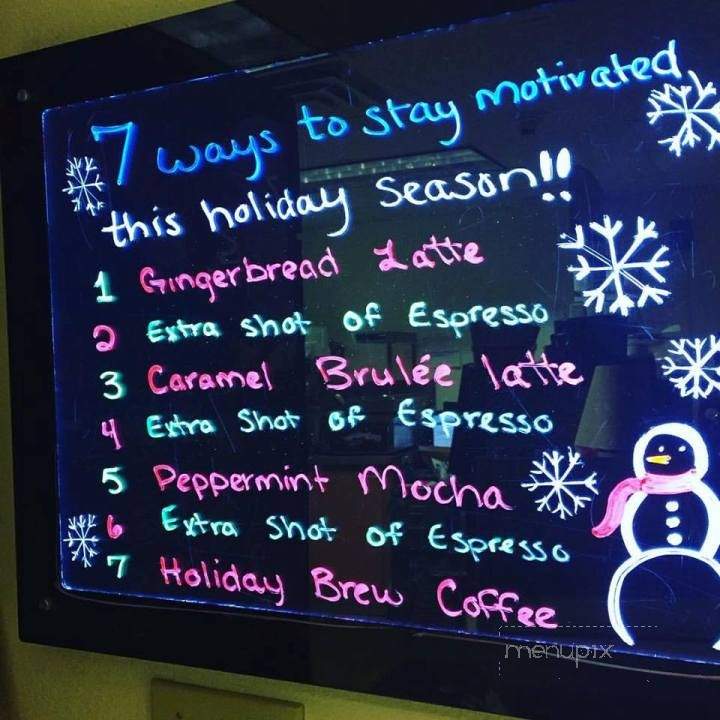 7 ways to stay motivated
this holiday season!!
1 Gingerbread Latte
2 Extra shot of Espresso
3 Caramel Brulée latte
4 Extra Shot of Espresso
5 Peppermint Mocha
6 Extra Shot of Espresso
7 Holiday Brew Coffee
menupix